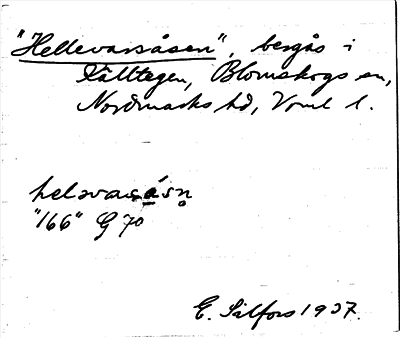 "Hellevarsåsen", bergås i
Källtegen, Blomskogs sn,
Nordmarks hd, Vrml l.
helavarsåsn
"166" G 70
E. Sälfors 1937.